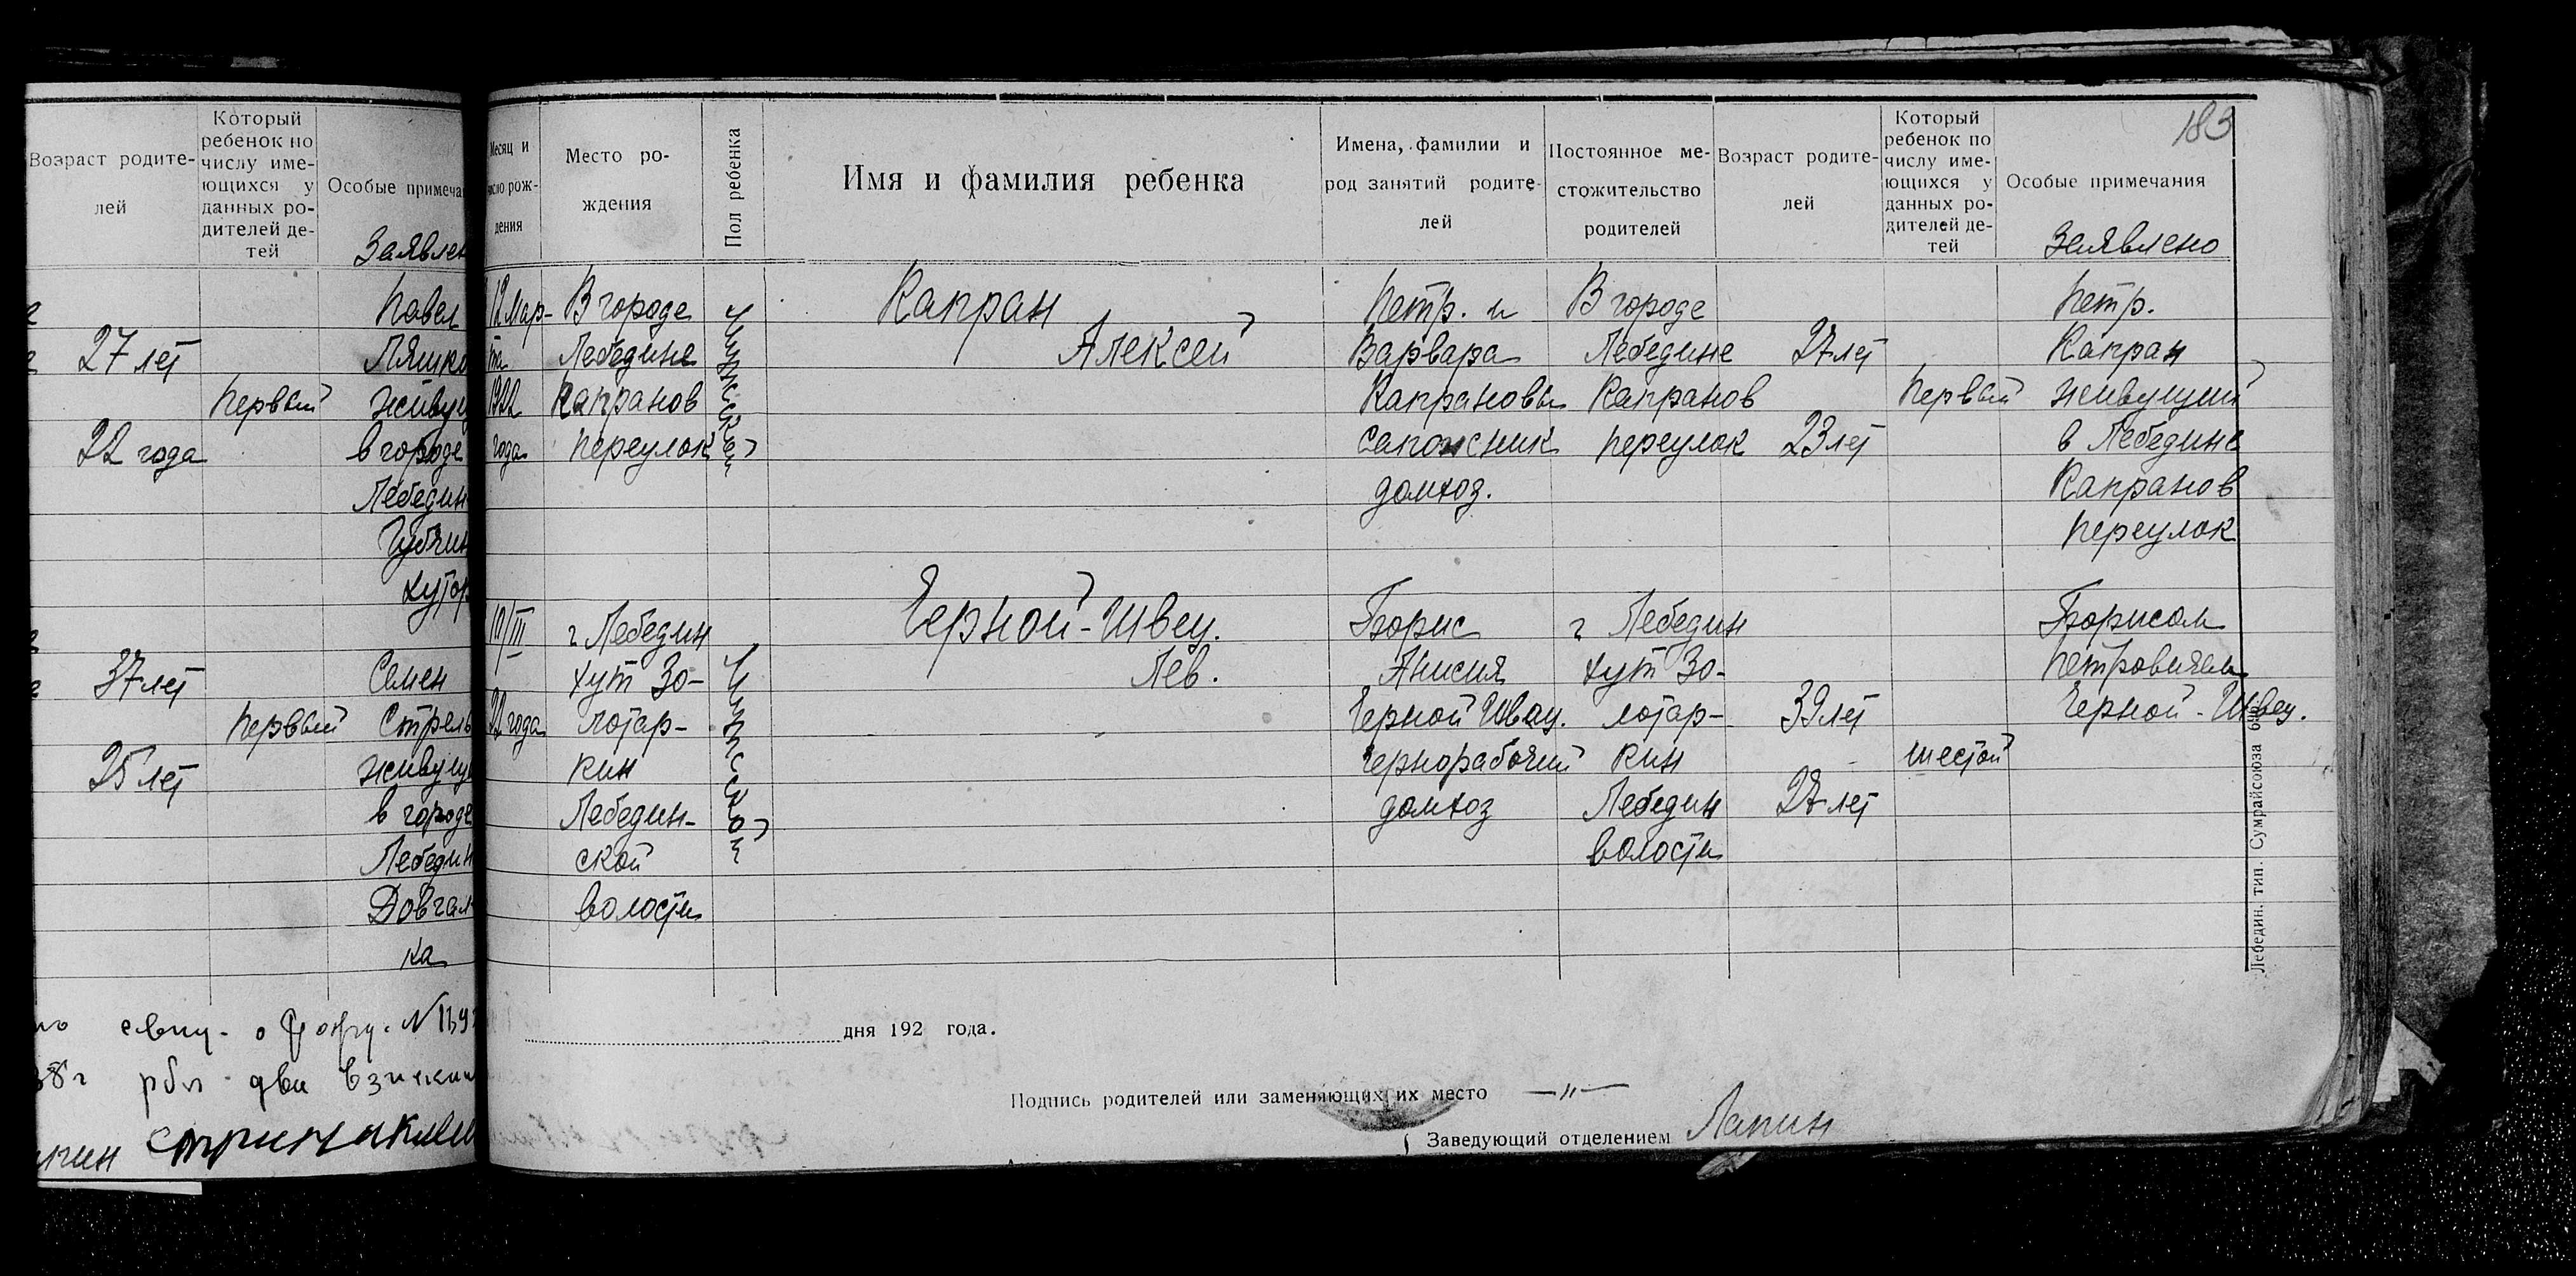 Возраст родите-
лей
Который
ребенок по
числу име-
ющихся у
данных ро-
дителей де-
тей
Особые примеча
Заявлен
27 лет
22 года
Первый
Павел
Ляшко
живущ
в городе
Лебедин
хутор
37 лет
25 лет
Первый
Семен
Стрель
живущ
в городе
Лебедин
Довгал
ка
183
Месяц и
число рож-
дения
Место ро-
ждения
Пол ребенка
Имя и фамилия ребенка
Имена, фамилии и
род занятий родите-
лей
Постоянное ме-
стожительство
родителей
Возраст родите-
лей
Который
ребенок по
числу име-
ющихся у
данных ро-
дителей де-
тей
Особые примечания
Заявлено
12 Мар-
та
1922
года
В городе
Лебедине
Капранов
переулок
Мужской
Капран
Алексей
Петр. и
Варвара
Капрановы
сапожник
домхоз.
В городе
Лебедине
Капранов
переулок
27 лет
23 лет
Первый
Петр.
Капран
живущий
в Лебедине
Капранов
переулок
22 года
г Лебедин
хут Зо-
лотар-
кин
Лебедин-
ской
волости
Мужской
Черной-Швец.
Лев.
Борис
Анисия
Черной Швец.
чернорабочий
домхоз
г Лебедин
хут Зо-
лотар-
кин
Лебедин
волости
39 лет
27 лет
шестой
Борисом
Петровичем
Черной-Швец.
дня 192 года.
Подпись родителей или заменяющих их место —"—
Заведующий отделением Лапин
Лебедин. тип. Сумрайсоюза